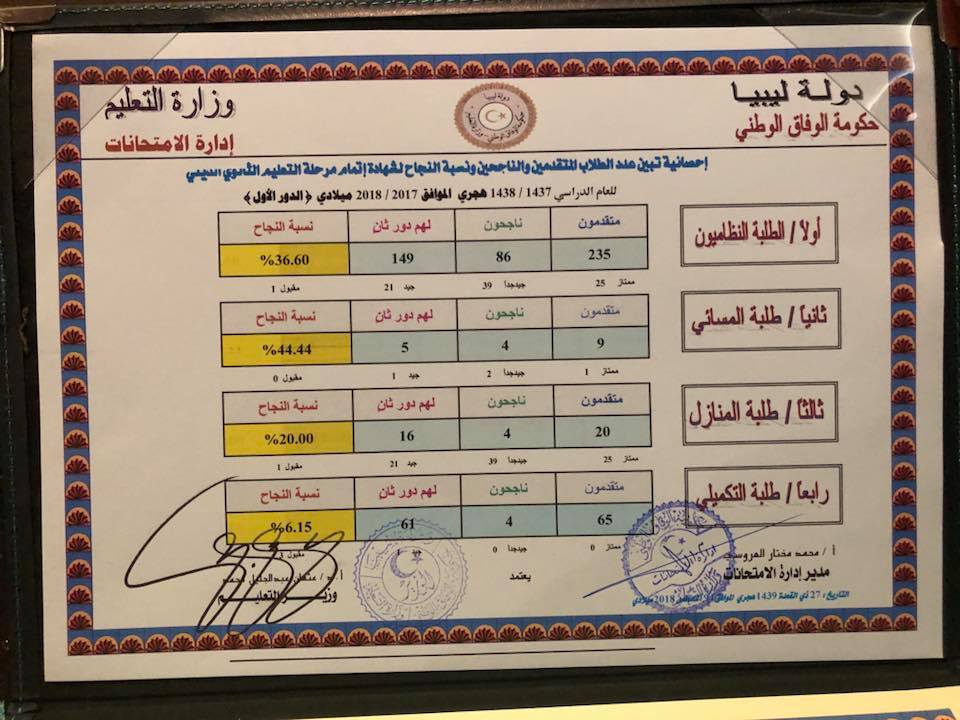 دولة ليبيا
حكومة الوفاق الوطني
وزارة التعليم
إدارة الامتحانات
دولة ليبيا
إحصائية تبين عدد الطلاب المتقدمين والناجحين ونسبة النجاح لشهادة إتمام مرحلة التعليم الثانوي الديني
للعام الدراسي 1437 / 1438 هجري الموافق 2017 / 2018 ميلادي (الدور الأول)
أولاً / الطلبة النظاميون
متقدمون ناجحون لهم دور ثان نسبة النجاح
235 86 149 %36.60
ممتاز 25 جيدجداً 39 جيد 21 مقبول 1
ثانياً / طلبة المسائي
متقدمون ناجحون لهم دور ثان نسبة النجاح
9 4 5 %44.44
ممتاز 1 جيدجداً 2 جيد 1 مقبول 0
ثالثاً / طلبة المنازل
متقدمون ناجحون لهم دور ثان نسبة النجاح
20 4 16 %20.00
ممتاز 25 جيدجداً 39 جيد 21 مقبول 1
رابعاً / طلبة التكميلي
متقدمون ناجحون لهم دور ثان نسبة النجاح
65 4 61 %6.15
ممتاز 0 جيدجداً 0 مقبول
أ / محمد مختار
مدير إدارة الامتحانات
التاريخ : 27 ذي القعدة 1439 هجري 2018 ميلادي
يعتمد
أ . د / عثمان عبدالجليل محمد
وزير التعليم